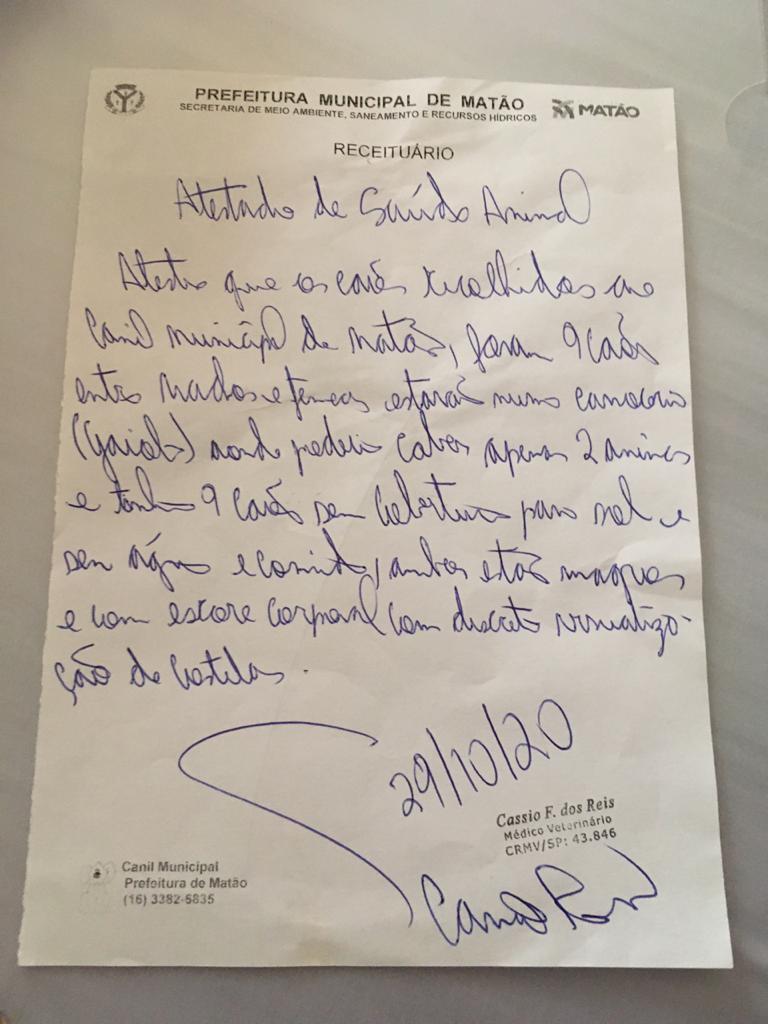 PREFEITURA MUNICIPAL DE MATÃO
SECRETARIA DE MEIO AMBIENTE, SANEAMENTO E RECURSOS HÍDRICOS
MATÃO
RECEITUÁRIO
Atestado de Saúde Animal
Atesto que os cães recolhidos ao
Canil Municipal de Matão, foram 9 cães
entre machos e fêmeas estavão numa
(gaiola) aonde poderia caber apenas 2 animais
e tinha 9 cães sem cobertura para sol e
sem água e comida, ambos estão magros
e com escore corporal com discreta visualiza-
ção de costelas.
29/10/20
Cassio F. dos Reis
Médico Veterinário
CRMV/SP: 43.846
Canil Municipal
Prefeitura de Matão
(16) 3382-5835